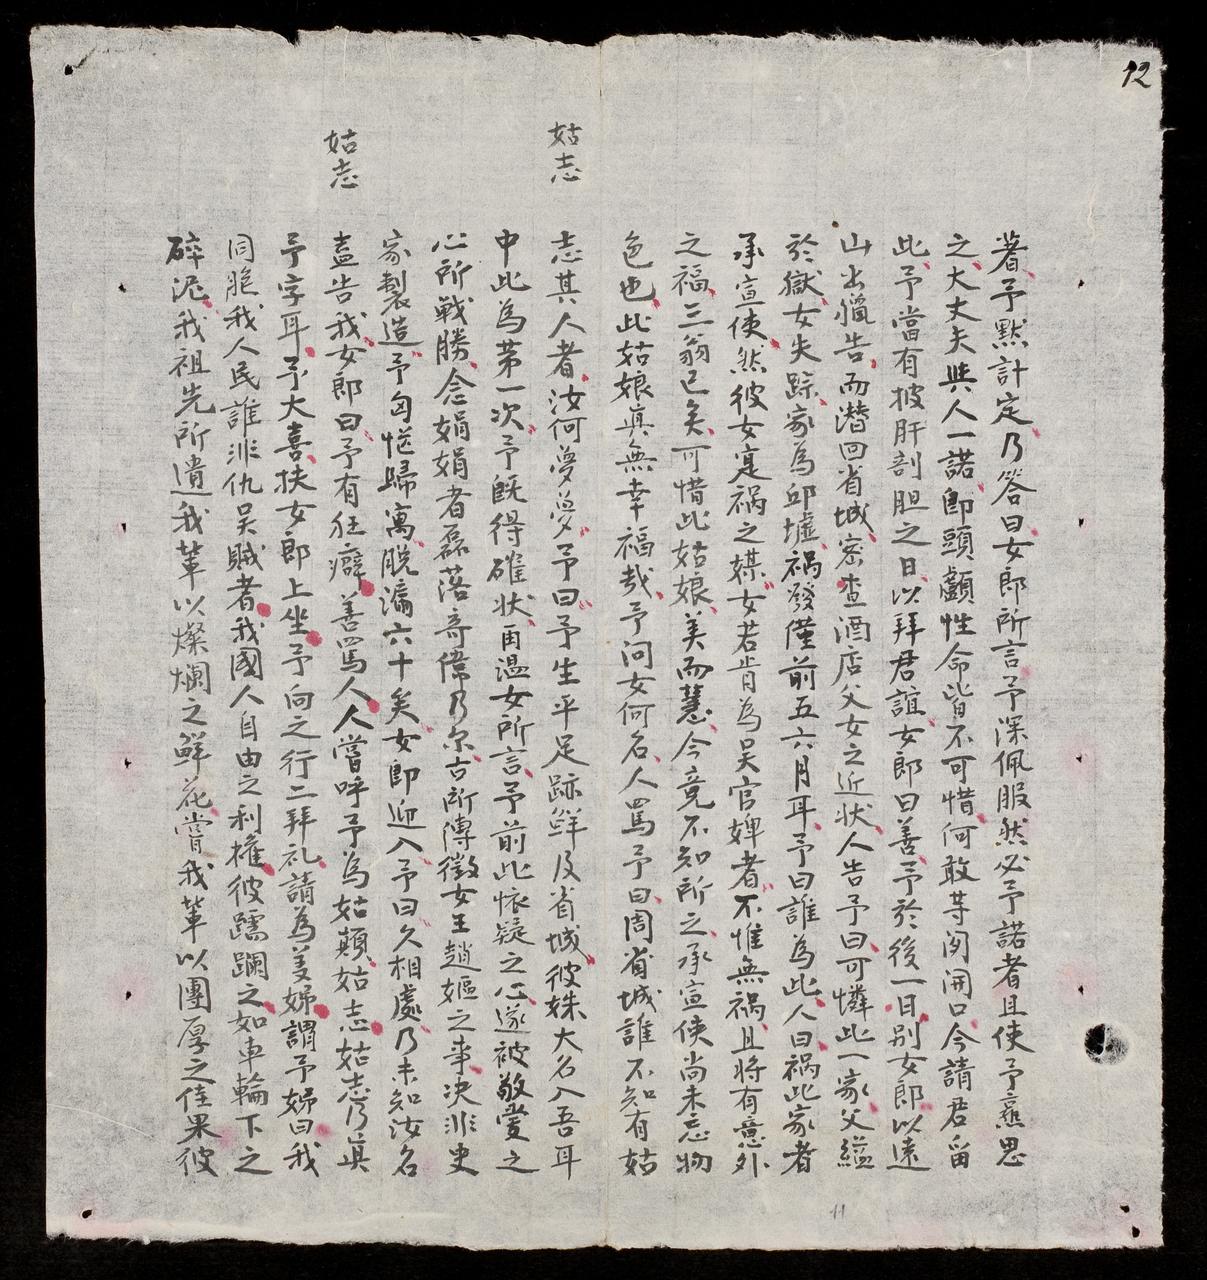 12
姑志
姑志
著予默計定乃答曰女郎所言予深佩服然必予諾者且使予熟思
之大丈夫與人一諾即頭顱性命皆不可惜何敢等閑開口今請君留
此予當有披肝剖胆之日以拜君誼女郎曰善予於後一日别女郎以遠
山出獵告而潛回省城密查酒店父女之近状人告予曰可憐此一家父縊
於獄女失踪家為邱墟禍發僅前五六月耳予曰誰為此人曰禍此家者
承宣使然彼女寔禍之媒女若肯為吴官婢者不惟無禍且將有意外
之福三翁已矣可惜此姑娘美而慧今竟不知所之承宣使尚未忘物
色也此姑娘真無幸福哉予问女何名人罵予曰周省城誰不知有姑
志其人者汝何夢夢予曰予生平足跡鲜及省城彼姝大名入吾耳
中此為苐一次予既得確状再温女所言予前此懷疑之心遂被敬愛之
心所戦勝念娟娟者磊落奇偉乃尔古所傳徵女王趙嫗之事决非史
家製造予匆愡歸寓脱漏六十矣女郎迎入予曰久相處乃未知汝名
盍告我女郎曰予有狂癖善罵人人嘗呼予為姑顛姑志姑志乃真
予字耳予大喜扶女郎上坐予向之行二拜礼請為義姊謂予姊曰我
同胞我人民誰非仇吴賊者我國人自由之利權彼蹂躙之如車輪下之
碎泥我祖先所遺我輩以燦爛之鮮花嘗我輩以團厚之佳果彼
11